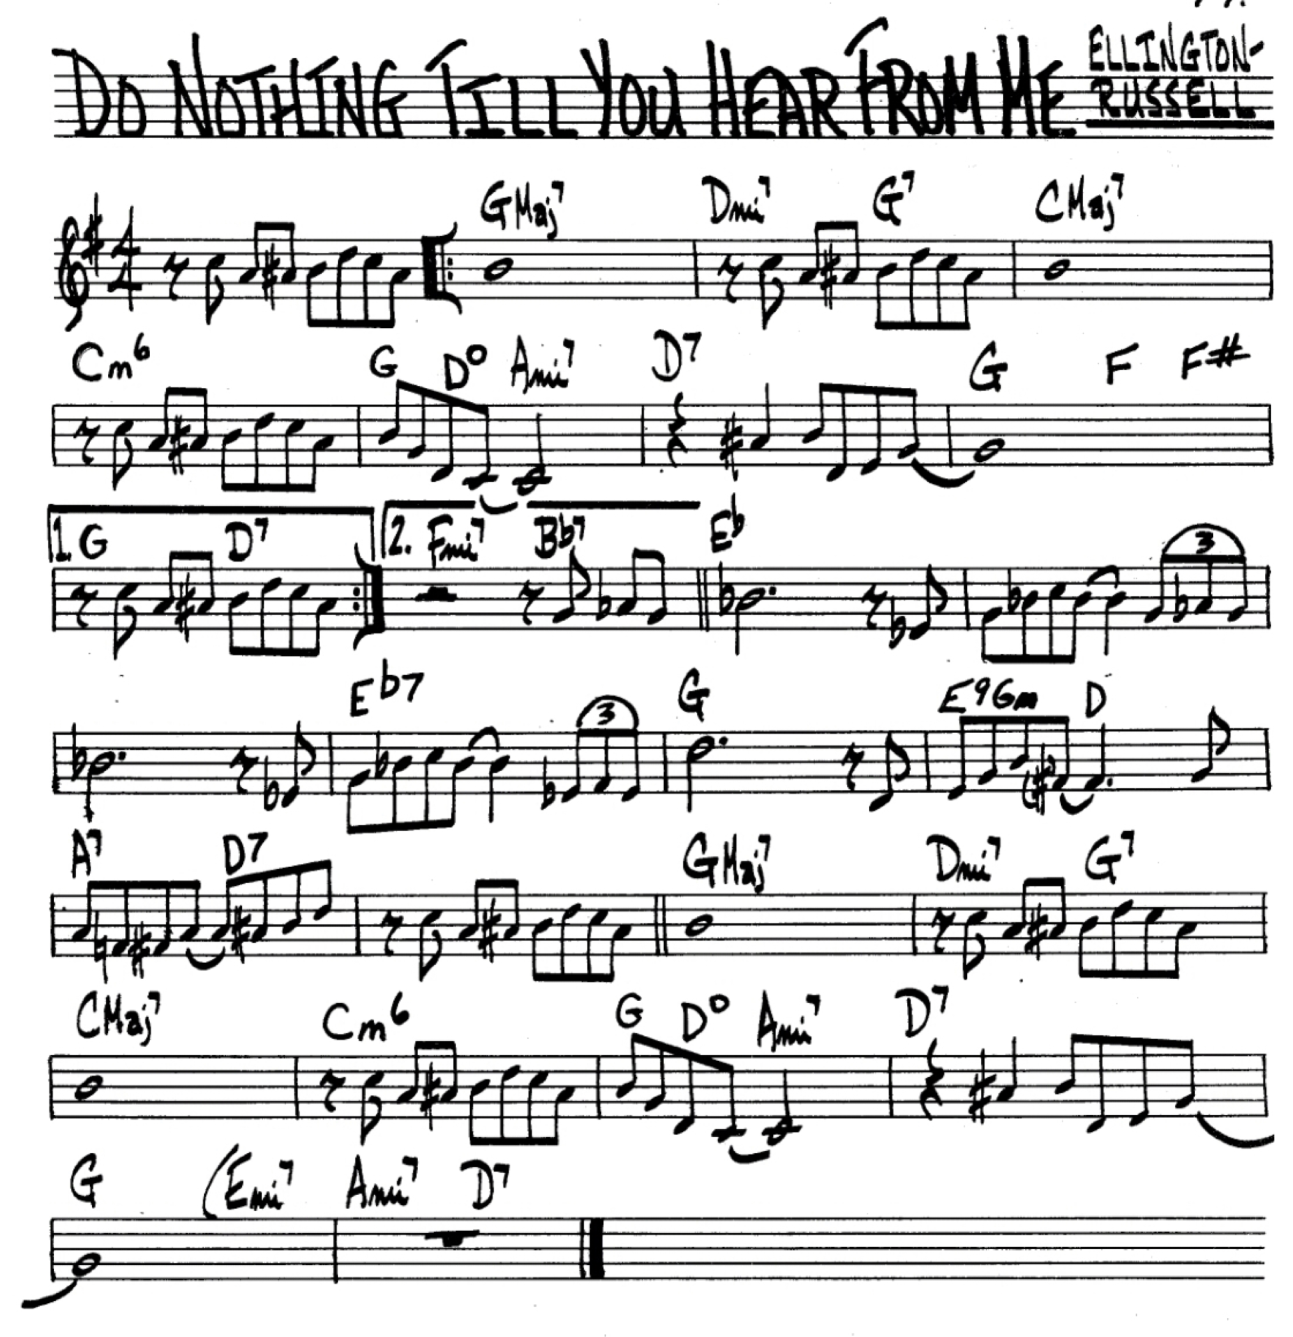 DO NOTHING TILL YOU HEAR FROM ME
ELLINGTON-
RUSSELL
4
4
GMaj7 Dmi7 G7 CMaj7
Cm6 G D° Ami7 D7 G F F#
1. G D7 2. Fmi7 Bb7 Eb
3
Eb7 G E9 Gm D
3
A7 D7 GMaj7 Dmi7 G7
CMaj7 Cm6 G D° Ami7 D7
G (Emi7 Ami7 D7